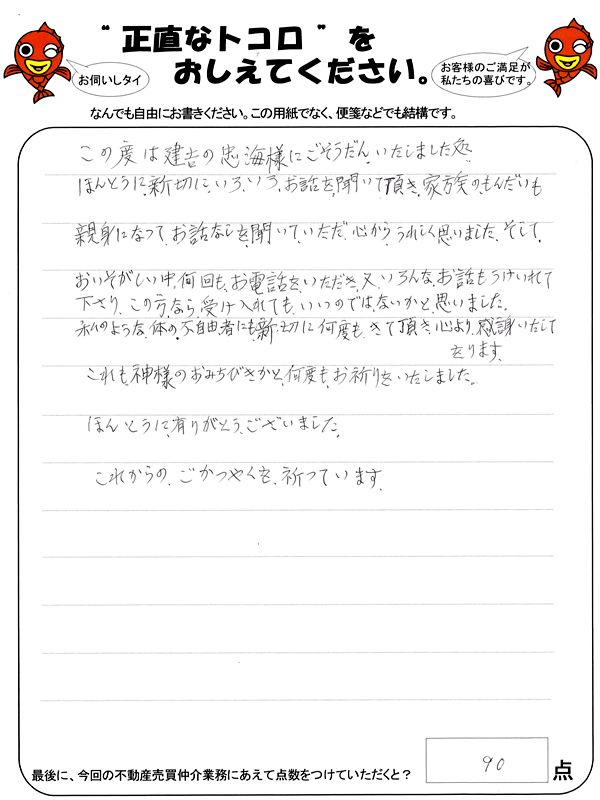 "正直なトコロ"を
おしえてください。
お伺いしタイ
お客様のご満足が
私たちの喜びです。
なんでも自由にお書きください。この用紙でなく、便箋などでも結構です。
この度は建吉の忠海様にごそうだん、いたしました処
ほんとうに、新切に、いろ、いろ、お話を、聞いて頂き、家族の、もんだいも
親身になって、お話なしを、聞いて、いただ、心から、うれしく思いました、そして、
おいそがしい中、何回も、お電話を、いただき、又、いろんな、お話もうけいれて
下さり、この方なら、受け入れても、いいのではないかと、思いました。
私のような、体の、不自由者にも、新切に何度も、きて頂き、心より、感謝いたして
をります。
これも、神様のおみちびきかと、何度も、お祈りを、いたしました。
ほんとうに、有りがとう、ございました。
これからの、ごかつやくを、祈っています。
最後に、今回の不動産売買仲介業務にあえて点数をつけていただくと？
90
点